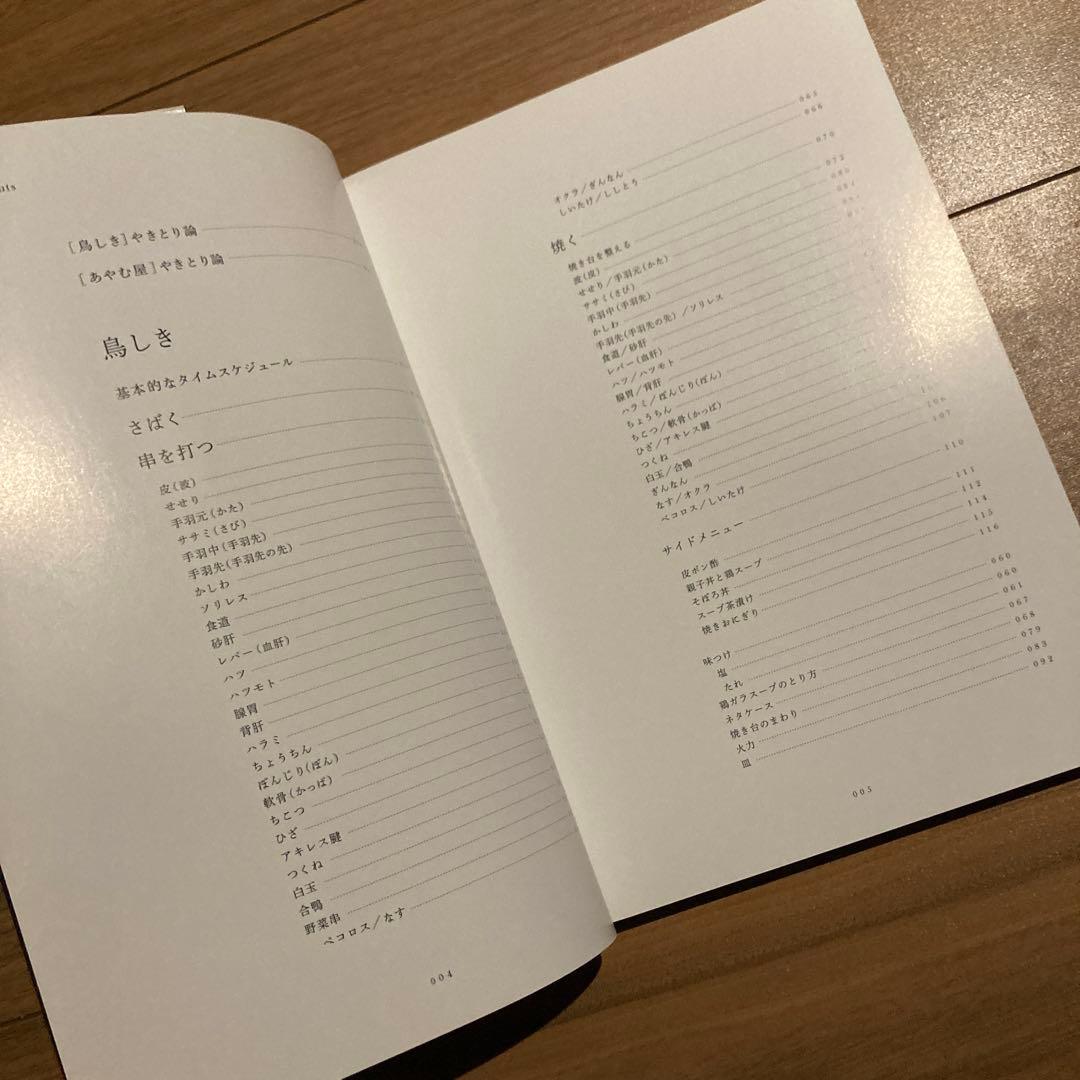 [鳥しき]やきとり論
[あやむ屋]やきとり論
鳥しき
基本的なタイムスケジュール
さばく
串を打つ
皮(波)
せせり
手羽元(かた)
ササミ(さび)
手羽中(手羽先)
手羽先(手羽先の先)
かしわ
ソリレス
食道
砂肝
レバー(血肝)
ハツ
ハツモト
腺胃
背肝
ハラミ
ちょうちん
ぼんじり(ぼん)
軟骨(かっぱ)
ちこつ
ひざ
アキレス腱
つくね
白玉
合鴨
野菜串
ペコロス/なす
004
オクラ/ぎんなん 065
しいたけ/ししとう 066
焼く 070
焼き台を整える 072
波(皮) 080
せせり/手羽元(かた)
ササミ(さび)
手羽中(手羽先)
かしわ
手羽先(手羽先の先)/ソリレス
食道/砂肝
レバー(血肝)
ハツ/ハツモト
腺胃/背肝
ハラミ/ぼんじり(ぼん)
ちょうちん
ちこつ/軟骨(かっぱ)
ひざ/アキレス腱
つくね
白玉/合鴨
ぎんなん
なす/オクラ 106
ペコロス/しいたけ 107
サイドメニュー 110
皮ポン酢 111
親子丼と鶏スープ 112
そぼろ丼 114
スープ茶漬け 115
焼きおにぎり 116
味つけ 060
塩 060
たれ 061
鶏ガラスープのとり方 067
ネタケース 068
焼き台のまわり 079
火力 083
皿 092
005